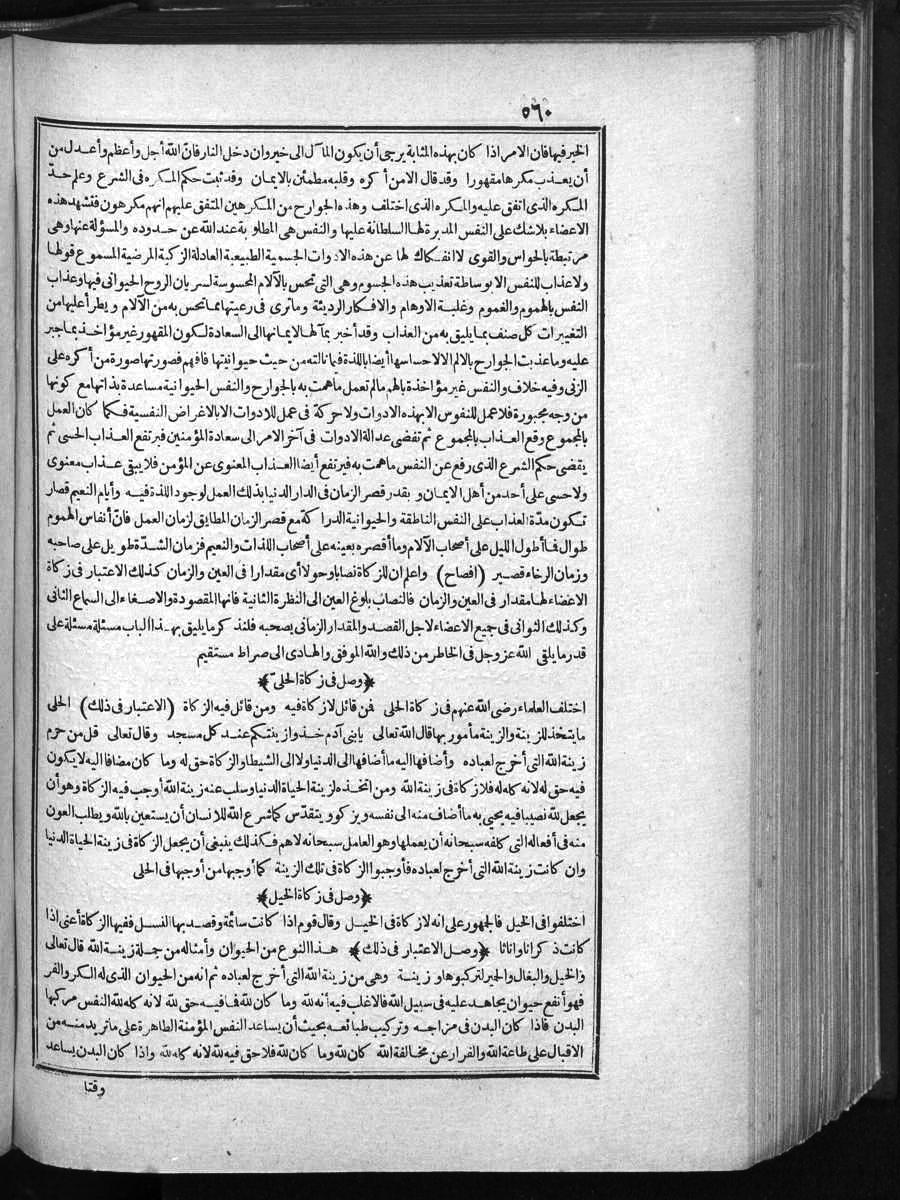 ٥٦٠
الخبر فيها فان الامر اذا كان بهذه المثابة يرجى أن يكون المآل الى خير وان دخل النار فان الله أجل وأعظم وأعدل من
أن يعذب مكرها مقهورا وقد قال الا من أكره وقلبه مطمئن بالايمان وقد ثبت حكم المكره فى الشرع وعلم حدّ
المكره الذى اتفق عليه والمكره الذى اختلف وهذه الجوارح من المكرهين المتفق عليهم انهم مكرهون فتشهد هذه
الاعضاء بلا شك على النفس المدبرة لها السلطانة عليها والنفس هى المطلوبة عند الله عن حدوده والمسؤلة عنها وهى
مرتبطة بالحواس والقوى لا انفكاك لها عن هذه الادوات الجسمية الطبيعية العادلة الزكية المرضية المسموع قولها
ولا عذاب للنفس الا بوساطة تعذيب هذه الجسوم وهى التى تحس بالآلام المحسوسة لسريان الروح الحيوانى فيها وعذاب
النفس بالهموم والغموم وغلبة الاوهام والافكار الرديئة وما ترى فى رعيتها مما تحس به من الآلام و يطرأ عليها من
التغييرات كل صنف بما يليق به من العذاب وقد أخبر بمآلها لايمانها الى السعادة لكون المقهور غير مؤاخذ بما جبر
عليه وما عذبت الجوارح بالالم الا لاحساسها أيضا باللذة فيما نالته من حيث حيوانيتها فافهم فصورتها صورة من أكره على
الزنى وفيه خلاف والنفس غير مؤاخذة بالهم ما لم تعمل ما همت به بالجوارح والنفس الحيوانية مساعدة بذاتها مع كونها
من وجه مجبورة فلا عمل للنفوس الا بهذه الادوات ولا حركة فى عمل للادوات الا بالاغراض النفسية فكما كان العمل
بالمجموع وقع العذاب بالمجموع ثم تفضى عدالة الادوات فى آخر الامر الى سعادة المؤمنين فيرتفع العذاب الحسى ثم
يقضى حكم الشرع الذى رفع عن النفس ما همت به فيرتفع أيضا العذاب المعنوى عن المؤمن فلا يبقى عذاب معنوى
ولا حسى على أحد من أهل الايمان و بقدر قصر الزمان فى الدار الدنيا بذلك العمل لوجود اللذة فيه وأيام النعيم قصار
تكون مدّة العذاب على النفس الناطقة والحيوانية الدراكة مع قصر الزمان المطابق لزمان العمل فانّ أنفاس الهموم
طوال فما أطول الليل على أصحاب الآلام وما أقصره بعينه على أصحاب اللذات والنعيم فزمان الشدّة طويل على صاحبه
وزمان الرخاء قصير (افصاح) واعلم ان للزكاة نصابا وحولا أى مقدارا فى العين والزمان كذلك الاعتبار فى زكاة
الاعضاء لها مقدار فى العين والزمان فالنصاب بلوغ العين الى النظرة الثانية فانها المقصودة والاصغاء الى السماع الثانى
وكذلك الثوانى فى جميع الاعضاء لاجل القصد والمقدار الزمانى يصحبه فلنذكر ما يليق بهذا الباب مسئلة مسئلة على
قدر ما يلقى الله عز وجل فى الخاطر من ذلك والله الموفق والهادى الى صراط مستقيم
﴿وصل فى زكاة الحلىّ﴾
اختلف العلماء رضى الله عنهم فى زكاة الحلى فمن قائل لا زكاة فيه ومن قائل فيه الزكاة (الاعتبار فى ذلك) الحلى
ما يتخذ للزينة والزينة مأمور بها قال الله تعالى يا بنى آدم خذوا زينتكم عند كل مسجد وقال تعالى قل من حرم
زينة الله التى أخرج لعباده وأضافها اليه ما أضافها الى الدنيا ولا الى الشيطان والزكاة حق له وما كان مضافا اليه لا يكون
فيه حق له لانه كله له فلا زكاة فى زينة الله ومن اتخذه لزينة الحياة الدنيا وسلب عنه زينة الله أوجب فيه الزكاة وهو أن
يجعل لله نصيبا فيه يحيى به ما أضاف منه الى نفسه ويزكو ويتقدّس كما شرع الله للانسان أن يستعين بالله ويطلب العون
منه فى أفعاله التى كلفه سبحانه أن يعملها وهو العامل سبحانه لا هم فكذلك ينبغى أن يجعل الزكاة فى زينة الحياة الدنيا
وان كانت زينة الله التى أخرج لعباده فأوجبوا الزكاة فى تلك الزينة كما أوجبها من أوجبها فى الحلى
﴿وصل فى زكاة الخيل﴾
اختلفوا فى الخيل فالجمهور على انه لا زكاة فى الخيل وقال قوم اذا كانت سائمة وقصد بها النسل ففيها الزكاة أعنى اذا
كانت ذكرانا واناثا ﴿وصل الاعتبار فى ذلك﴾ هذا النوع من الحيوان وأمثاله من جملة زينة الله قال تعالى
والخيل والبغال والحمير لتركبوها و زينة وهى من زينة الله التى أخرج لعباده ثم انه من الحيوان الذى له الكر والفر
فهو أنفع حيوان يجاهد عليه فى سبيل الله فالاغلب فيه أنه لله وما كان لله فما فيه حق لله لانه كله لله النفس مركبها
البدن فاذا كان البدن فى مزاجه وتركيب طبائعه بحيث أن يساعد النفس المؤمنة الطاهرة على ما تريد منه من
الاقبال على طاعة الله والفرار عن مخالفة الله كان لله وما كان لله فلا حق فيه لله لانه كله لله واذا كان البدن يساعد
وقتا